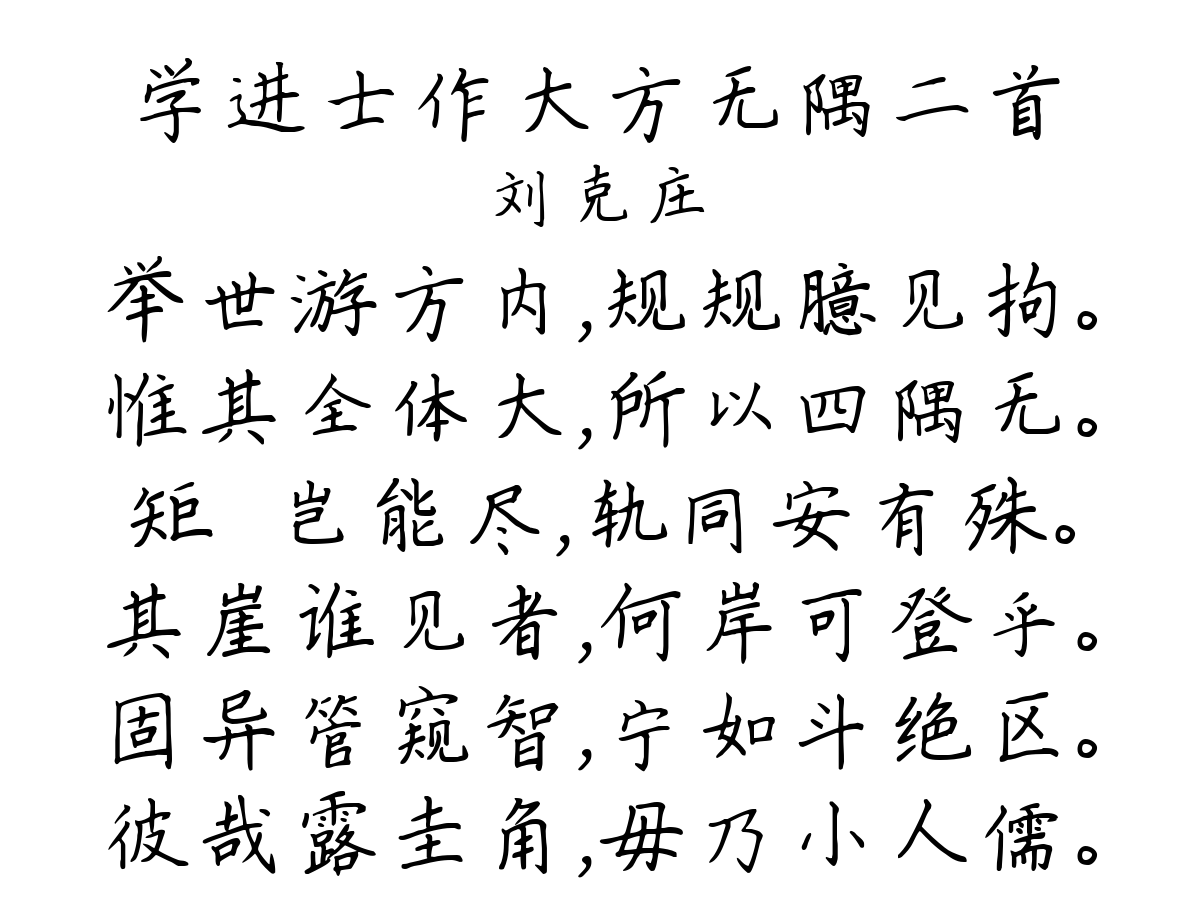 学进士作大方无隅二首
刘克庄
举世游方内,规规臆见拘。
惟其全体大,所以四隅无。
矩 岂能尽,轨同安有殊。
其崖谁见者,何岸可登乎。
固异管窥智,宁如斗绝区。
彼哉露圭角,毋乃小人儒。